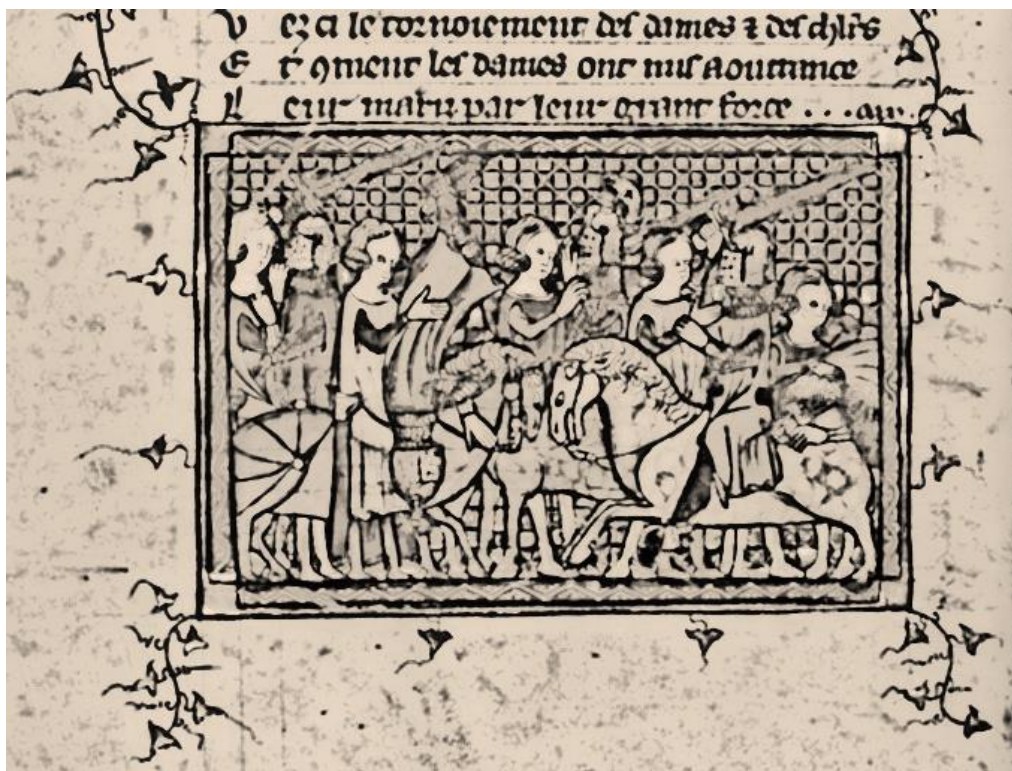 V ez ci le tornoiement des dames ⁊ des chlrs
E t ꝯment les dames ont mis a outtrance
L eur mariz par leur grant force . . .